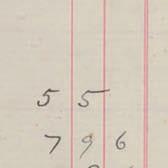 5 5
7 9 6